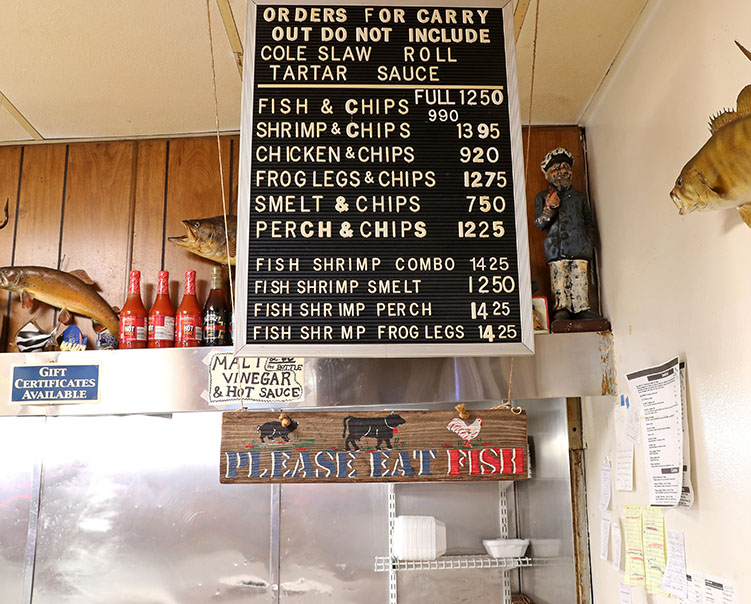 ORDERS FOR CARRY
OUT DO NOT INCLUDE
COLE SLAW ROLL
TARTAR SAUCE
FISH & CHIPS FULL 1250
990
SHRIMP & CHIPS 1395
CHICKEN & CHIPS 920
FROG LEGS & CHIPS 1275
SMELT & CHIPS 750
PERCH & CHIPS 1225
FISH SHRIMP COMBO 1425
FISH SHRIMP SMELT 1250
FISH SHRIMP PERCH 1425
FISH SHR MP FROG LEGS 1425
HOT
HOT
GIFT
CERTIFICATES
AVAILABLE
MALT
BOTTLE
VINEGAR
& HOT SAUCE
PLEASE EAT FISH